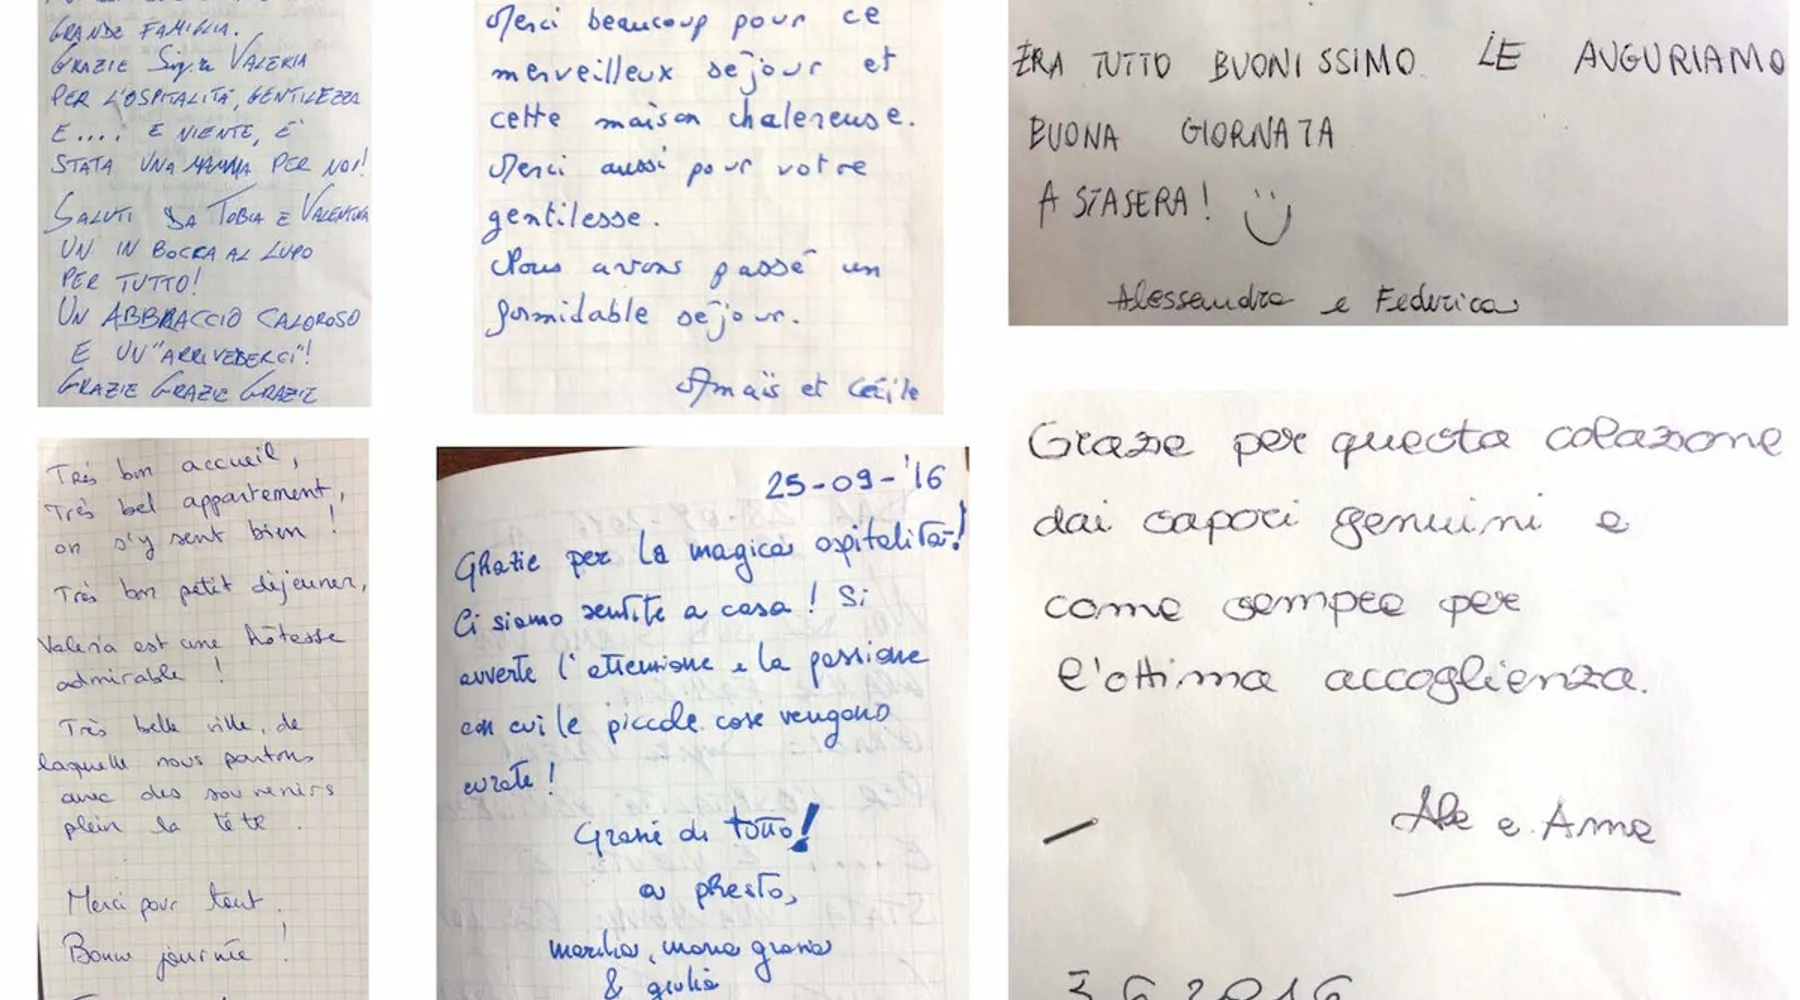 GRANDE FAMIGLIA.
GRAZIE Sig.ra VALERIA
PER L'OSPITALITÀ, GENTILEZZA
E.... E NIENTE, È
STATA UNA MAMMA PER NOI!
SALUTI DA TOBIA E VALENTINA
UN IN BOCCA AL LUPO
PER TUTTO!
UN ABBRACCIO CALOROSO
E UN "ARRIVEDERCI"!
GRAZIE GRAZIE GRAZIE
Merci beaucoup pour ce
merveilleux séjour et
cette maison chalereuse.
Merci aussi pour votre
gentilesse.
Nous avons passé un
formidable séjour.
Amaïs et Cécile
ERA TUTTO BUONISSIMO LE AUGURIAMO
BUONA GIORNATA
A STASERA!
Alessandra e Federica
Très bon accueil,
Très bel appartement,
on s'y sent bien !
Très bon petit déjeuner,
Valeria est une hôtesse
admirable !
Très belle ville, de
laquelle nous partons
avec des souvenirs
plein la tête.
Merci pour tout.
Bonne journée !
25-09-'16
Grazie per la magica ospitalità!
Ci siamo sentite a casa! Si
avverte l'attenzione e la passione
con cui le piccole cose vengono
curate!
Grazie di tutto!
a presto,
marika, maria grazia
& giulia
Grazie per questa colazione
dai sapori genuini e
come sempre per
l'ottima accoglienza.
Ale e Anna
3 6 2016